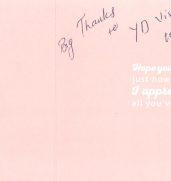 Big Thanks
to YD Vis
Hope you
just how
I appre
all you v